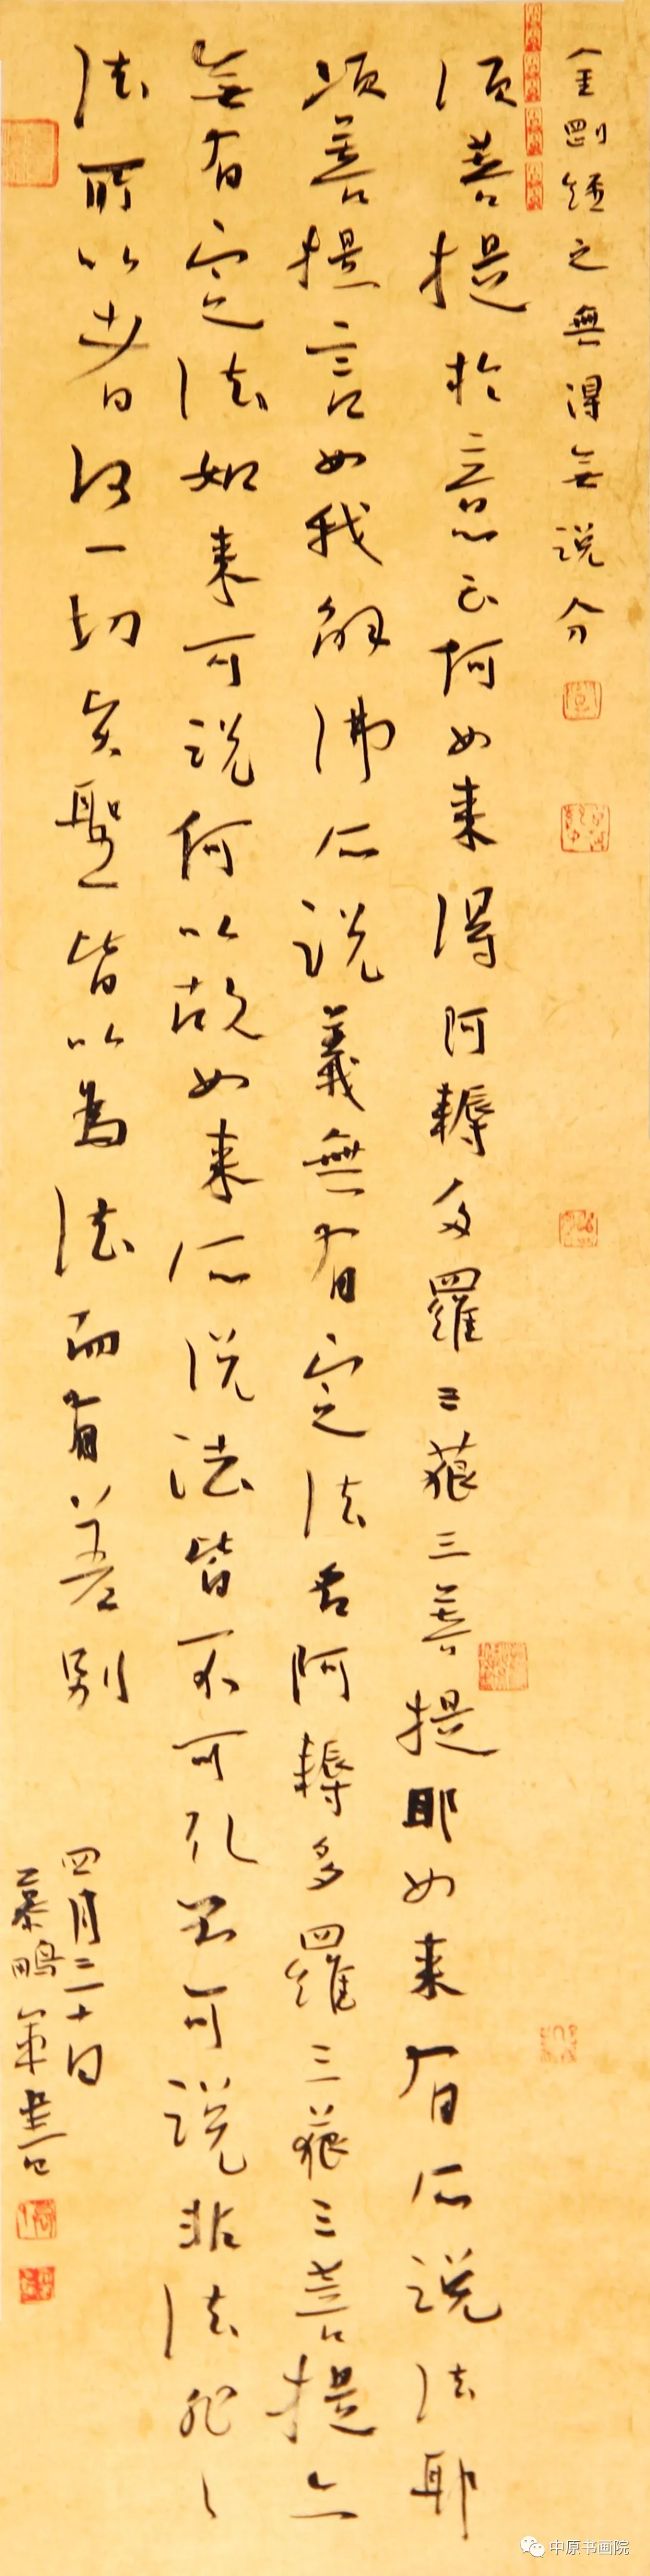 金剛經之無得無説分
須菩提於意云何如来得阿耨多羅三藐三菩提耶如来有所説法耶
須菩提言如我解佛所説義無有定法名阿耨多羅三藐三菩提亦
無有定法如来可説何以故如来所説法皆不可取不可説非法非〻
法所以者何一切賢聖皆以為法而有差別
四月三十日
慕鵬軍書
中原书画院